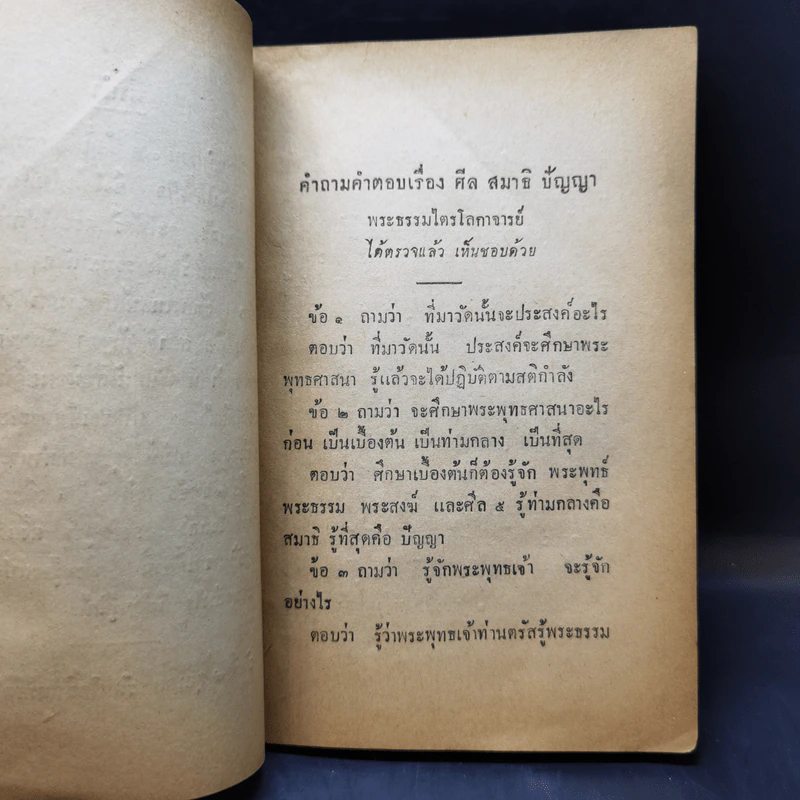 คำถามคำตอบเรื่อง ศีล สมาธิ ปัญญา
พระธรรมไตรโลกาจารย์
ได้ตรวจแล้ว เห็นชอบด้วย
ข้อ ๑ ถามว่า ที่มาวัดนั้นจะประสงค์อะไร
ตอบว่า ที่มาวัดนั้น ประสงค์จะศึกษาพระ
พุทธศาสนา รู้แล้วจะได้ปฏิบัติตามสติกำลัง
ข้อ ๒ ถามว่า จะศึกษาพระพุทธศาสนาอะไร
ก่อน เป็นเบื้องต้น เป็นท่ามกลาง เป็นที่สุด
ตอบว่า ศึกษาเบื้องต้นก็ต้องรู้จัก พระพุทธ์
พระธรรม พระสงฆ์ และศีล ๕ รู้ท่ามกลางคือ
สมาธิ รู้ที่สุดคือ ปัญญา
ข้อ ๓ ถามว่า รู้จักพระพุทธเจ้า จะรู้จัก
อย่างไร
ตอบว่า รู้ว่าพระพุทธเจ้าท่านตรัสรู้พระธรรม